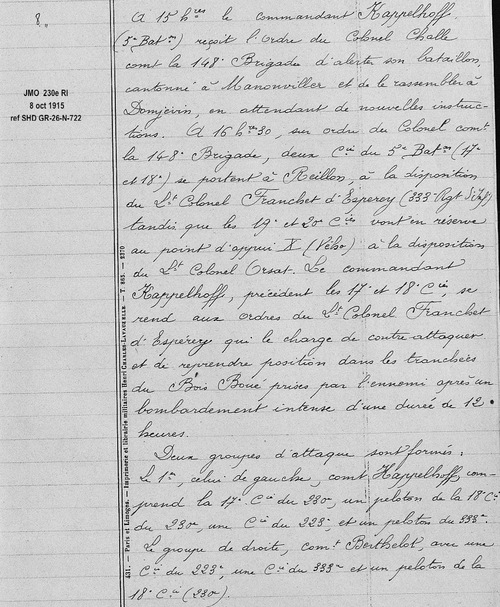 8.
JMO 230e RI
8 oct 1915
ref SHD GR-26-N-722
431. — Paris et Limoges. — Imprimerie et librairie militaires Henri CHARLES-LAVAUZELLE — T. 865. — 2370
A 15h res le commandant Kappelhoff
(5e Baton) reçoit l'ordre du Colonel Challe
comt la 148e Brigade d'alerter son bataillon,
cantonné à Manonviller et de le rassembler à
Domjevin, en attendant de nouvelles instruc-
tions. A 16 hres 30, sur ordre du Colonel comt
la 148e Brigade, deux Cies du 5e Baton (17e
et 18e) se portent à Reillon, à la disposition
du Lt Colonel Franchet d'Esperey (333e Rgt d'Inf)
tandis que les 19e et 20e Cies vont en réserve
au point d'appui X (Vého) à la disposition
du Lt Colonel Orsat. Le commandant
Kappelhoff, précédent les 17e et 18e Cies, se
rend aux ordres du Lt Colonel Franchet
d'Espérey qui le charge de contre-attaquer
et de reprendre position dans les tranchées
du Bois Boué prises par l'ennemi après un
bombardement intense d'une durée de 12
heures.
Deux groupes d'attaque sont formés :
Le 1er, celui de gauche, comt Kappelhoff, com-
prend la 17e Cie du 230e, un peloton de la 18e Cie
du 230e, une Cie du 223e, et un peloton du 333e.
Le groupe de droite, comt Berthelot, avec une
Cie du 223e, une Cie du 333e et un peloton de la
18e Cie (230e).